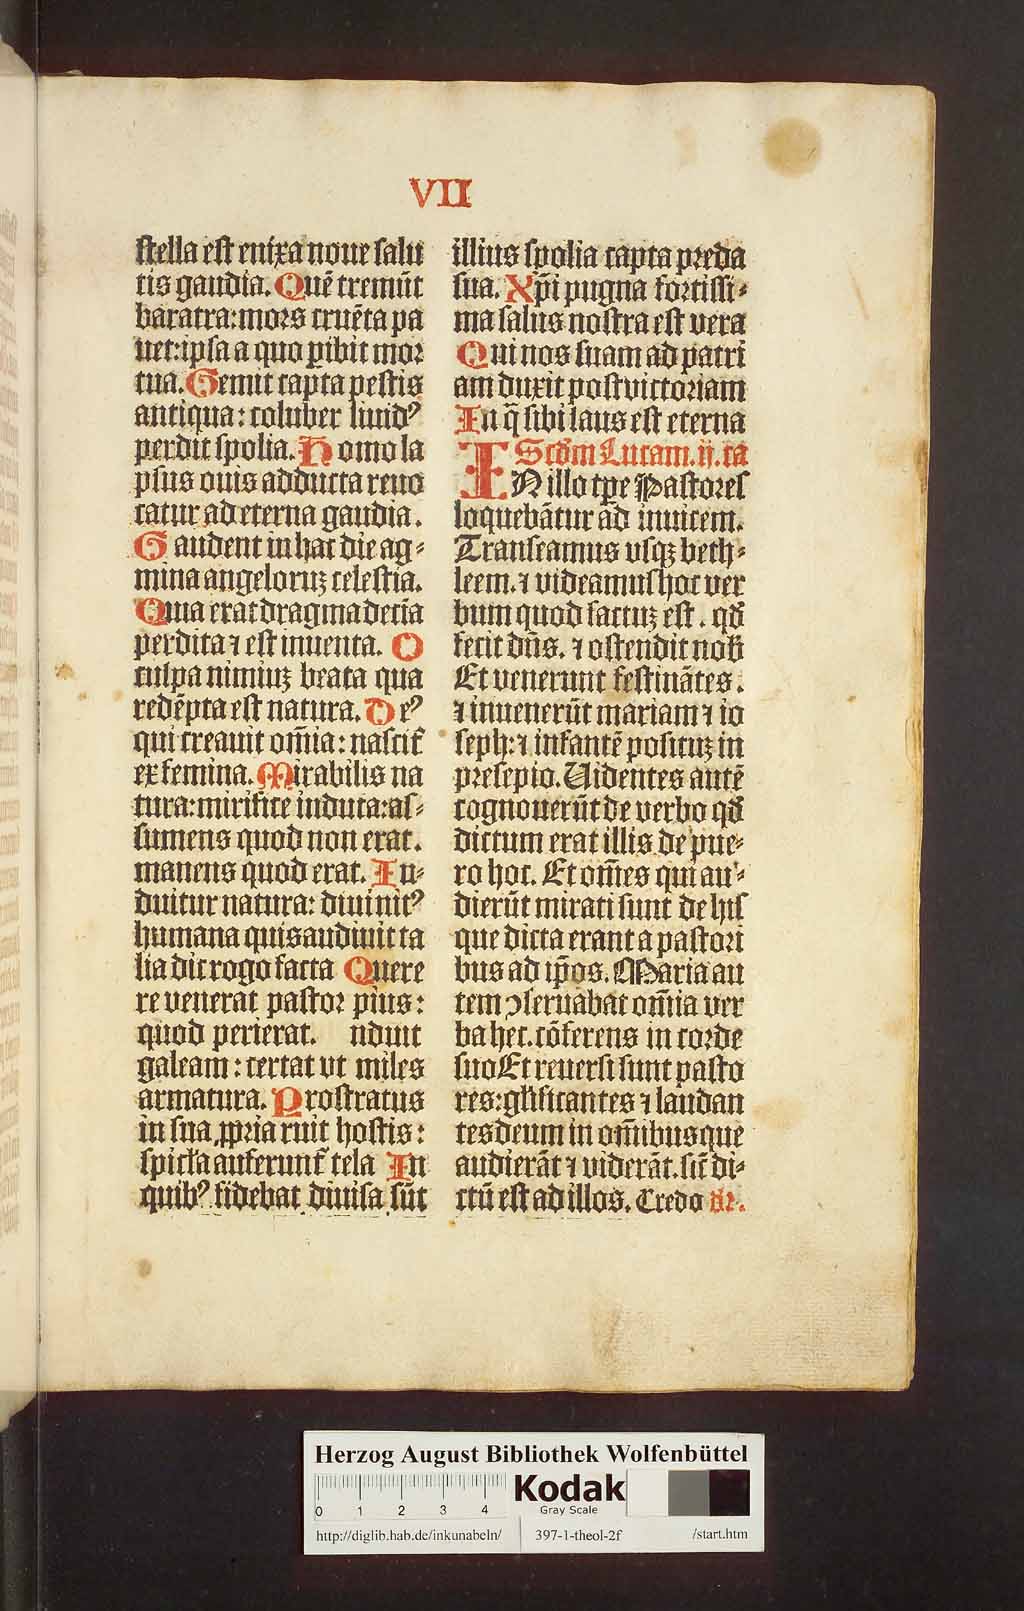 VII
stella est enixa noue salu
tis gaudia. Quē tremūt
baratra: mors cruēta pa
uet: ipsa a quo ꝑibit mor
tua. Gemit capta pestis
antiqua: coluber liuidꝰ
perdit spolia. Homo la
psus ouis adducta reuo
catur ad eterna gaudia.
Gaudent in hac die ag⸗
mina angeloruꝫ celestia.
Quia erat dragma decīa
perdita ⁊ est inuenta. O
culpa nimiuꝫ beata qua
redēpta est natura. Deꝰ
qui creauit om̄ia: nascit̄
ex femina. Mirabilis na
tura: mirifice induta: as⸗
sumens quod non erat.
manens quod erat. In⸗
duitur natura: diuinitꝰ
humana quis audiuit ta
lia dic rogo facta Quere
re venerat pastor pius:
quod perierat. nduit
galeam: certat vt miles
armatura. Prostratus
in sua ꝓpria ruit hostis:
spicl̄a auferunt̄ tela In
quibꝰ fidebat diuisa sūt
illius spolia capta preda
sua. Xp̄i pugna fortissi⸗
ma salus nostra est vera
Qui nos suam ad patri
am duxit post victoriam
In q̄ sibi laus est eterna
Scd̄m Lucam. ij. ca
IN illo tp̄e Pastores
loquebātur ad inuicem.
Transeamus vsqꝫ beth⸗
leem. ⁊ videamus hoc ver
bum quod factuꝫ est. qd̄
fecit dn̄s. ⁊ ostendit nob̄
Et venerunt festinātes.
⁊ inuenerūt mariam ⁊ io
seph: ⁊ infantē posituꝫ in
presepio. Uidentes autē
cognouerūt de verbo qd̄
dictum erat illis de pue⸗
ro hoc. Et om̄es qui au⸗
dierūt mirati sunt de his
que dicta erant a pastori
bus ad ip̄os. Maria au
tem ꝯseruabat om̄ia ver
ba hec. cōferens in corde
suo Et reuersi sunt pasto
res: gl̄ificantes ⁊ laudan
tes deum in om̄ibus que
audierāt ⁊ viderāt. sic̄ di⸗
ctū est ad illos. Credo
Herzog August Bibliothek Wolfenbüttel
0 1 2 3 4
Kodak
Gray Scale
http://diglib.hab.de/inkunabeln/ 397-1-theol-2f /start.htm